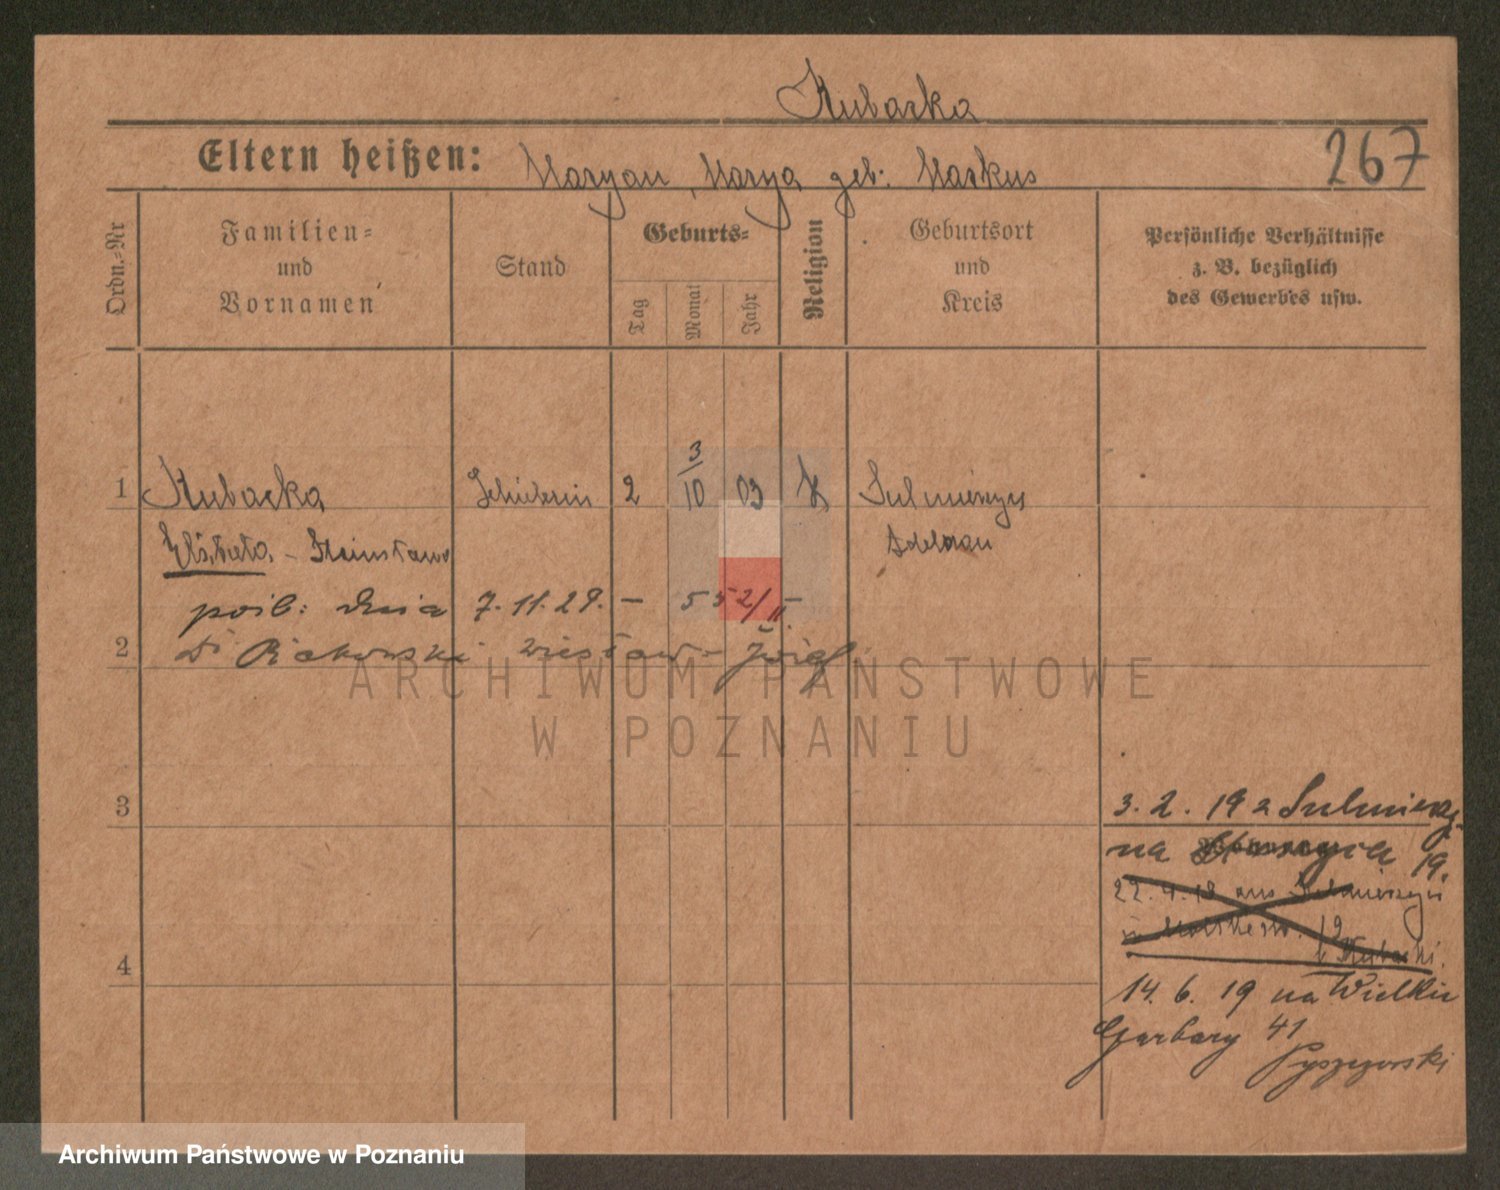 Kubacka
Eltern heißen: Maryan, Marya geb: Markus
267
Ordn.-Nr
Familien-
und
Vornamen
Stand
Geburts-
Tag
Monat
Jahr
Religion
Geburtsort
und
Kreis
Persönliche Verhältnisse
z. B. bezüglich
des Gewerbes usw.
1 Kubacka Schülerin 2 3/10 03 K Sulmierzyce
Elżbieta - Stanisława Adelnau
pośl: dnia 7.11.29. - 552/II.
2 Dr Rakowski Wiesław - Józef
3
3. 2. 19 z Sulmierz.
na 19.
22. 4. 18 aus Sulmierzyce
in
b Kubacki.
4
14. 6. 19 na Wielkie
Garbary 41
ARCHIWUM PAŃSTWOWE
W POZNANIU
Archiwum Państwowe w Poznaniu